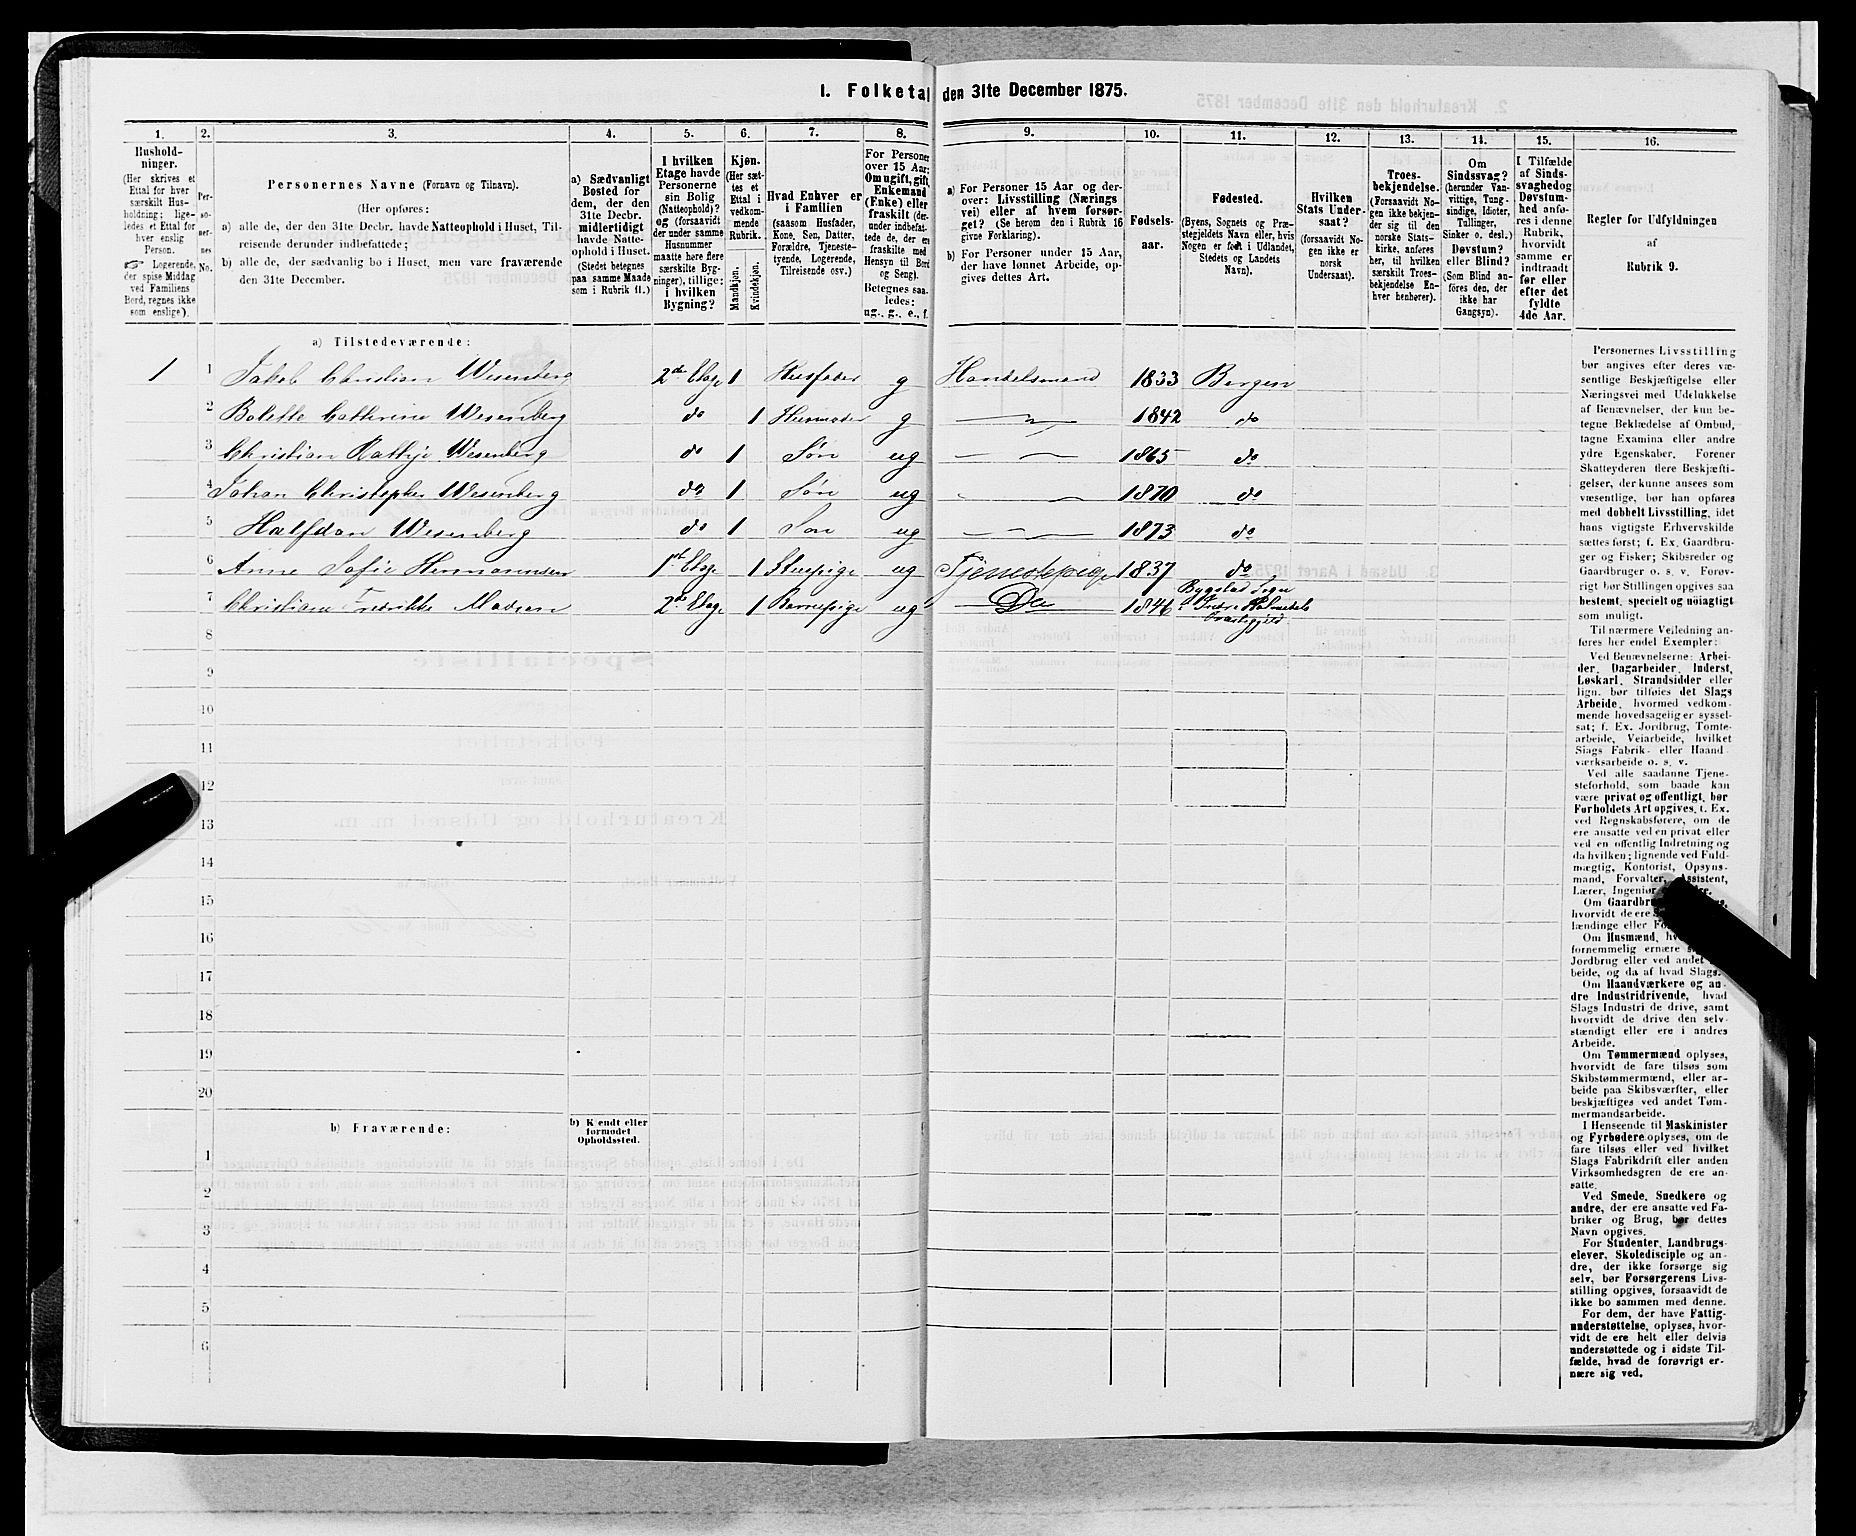 1. Folketal den 31te December 1875.
1. 2. 3. 4. 5. 6. 7. 8. 9. 10. 11. 12. 13. 14. 15. 16.
Hushold-
ninger.
(Her skrives et
Ettal for hver
særskilt Hus-
holdning; lige-
ledes et Ettal for
hver enslig
Person.
☞ Logerende,
der spise Middag
ved Familiens
Bord, regnes ikke
som enslige).
Per-
so-
ner-
nes
No.
Personernes Navne (Fornavn og Tilnavn).
(Her opføres:
a) alle de, der den 31te Decbr. havde Natteophold i Huset, Til-
reisende derunder indbefattede;
b) alle de, der sædvanlig bo i Huset, men vare fraværende
den 31te December.
a) Sædvanligt
Bosted for
dem, der den
31te Decbr.
midlertidigt
havde Natte-
ophold i Huset.
(Stedet betegnes
paa samme Maade
som i Rubrik 11.)
I hvilken
Etage havde
Personerne
sin Bolig
(Natteophold)?
og (forsaavidt
der under samme
Husnummer
maatte høre flere
særskilte Byg-
ninger), tillige:
i hvilken
Bygning?
Kjøn.
(Her sæt-
tes et
Ettal i
vedkom-
mende
Rubrik.
Mandkjøn.
Kvindekjøn.
Hvad Enhver er
i Familien
(saasom Husfader,
Kone, Søn, Datter,
Forældre, Tjeneste-
tyende, Logerende,
Tilreisende osv.)
For Personer
over 15 Aar:
Om ugift, gift,
Enkemand
(Enke) eller
fraskilt (der-
under indbefat-
tede de, der ere
fraskilte med
Hensyn til Bord
og Seng).
Betegnes saa-
ledes:
ug., g., e., f.
a) For Personer 15 Aar og der-
over: Livsstilling (Nærings
vei) eller af hvem forsør-
get? (Se herom den i Rubrik 16
givne Forklaring).
b) For Personer under 15 Aar,
der have lønnet Arbeide, op-
gives dettes Art.
Fødsels-
aar.
Fødested.
(Byens, Sognets og Præ-
stegjeldets Navn eller, hvis
Nogen er født i Udlandet,
Stedets og Landets
Navn).
Hvilken
Stats Under-
saat?
(forsaavidt No-
gen ikke er
norsk
Undersaat).
Troes-
bekjendelse.
(Forsaavidt No-
gen ikke bekjen-
der sig til den
norske Stats-
kirke, anføres
her, til hvilken
særskilt Troes-
bekjendelse En-
hver henhører).
Om
Sindssvag?
(herunder Van-
vittige, Tung-
sindige, Idioter,
Tullinger,
Sinker o. desl.)
Døvstum?
eller Blind?
(Som Blind an-
føres den, der
ikke har
Gangsyn).
I Tilfælde
af Sinds-
svaghed og
Døvstum-
hed anfø-
res i denne
Rubrik,
hvorvidt
samme er
indtraadt
før eller
efter det
fyldte
4de Aar.
Regler for Udfyldningen
af
Rubrik 9.
a) Tilstedeværende:
1 1 Jakob Christian Wesenberg 2de Etage 1 Husfader g Handelsmand 1833 Bergen
2 Bolette Cathrine Wesenberg do 1 Husmoder g — 1842 do
3 Christian Rathje Wesenberg do 1 Søn ug — — 1865 do
4 Johan Christopher Wesenberg do 1 Søn ug — — 1870 do
5 Halfdan Wesenberg do 1 Søn ug — — 1873 do
6 Anne Sofie Hermansen 1ste Etage 1 Stuepige ug Tjenestepige 1837 do
7 Christiane Fredrikke Madsen 2de Etage 1 Barnepige ug Do 1846 Bygstad Sogn
i Indre Holmedals
Præstegjeld
8
9
10
11
12
13
14
15
16
17
18
19
20
b) Fraværende:
b) Kjendt eller
formodet
Opholdssted.
1
2
3
4
5
6
Personernes Livsstilling
bør angives efter deres væ-
sentlige Beskjæftigelse eller
Næringsvei med Udelukkelse
af Benævnelser, der kun be-
tegne Beklædelse af Ombud,
tagne Examina eller andre
ydre Egenskaber. Forener
Skatteyderen flere Beskjæfti-
gelser, der kunne ansees som
væsentlige, bør han opføres
med dobbelt Livsstilling, idet
hans vigtigste Erhvervskilde
sættes først; f. Ex. Gaardbru-
ger og Fisker; Skibsreder og
Gaardbruger o. s. v. Forøv-
rigt bør Stillingen opgives saa
bestemt, specielt og nøiagtigt
som muligt.
Til nærmere Veiledning an-
føres her endel Exempler:
Ved Benævnelserne: Arbei-
der, Dagarbeider, Inderst,
Løskarl, Strandsidder eller
lign. bør tilføies det Slags
Arbeide, hvormed vedkom-
mende hovedsagelig er syssel-
sat; f. Ex. Jordbrug, Tomte-
arbeide, Veiarbeide, hvilket
Slags Fabrik- eller Haand
værksarbeide o. s. v.
Ved alle saadanne Tjene-
steforhold, som baade kan
være privat og offentligt, bør
Forholdets Art opgives, f. Ex.
ved Regnskabsførere, om de
ere ansatte ved en privat eller
ved en offentlig Indretning og
da hvilken; lignende ved Fuld-
mægtig, Kontorist, Opsyns-
mand, Forvalter, Assistent,
Lærer, Ingeniør
Om
hvorvidt de ere
lændinge eller
Om Husmænd,
fornemmelig ernære
Jordbrug eller ved andet
beide, og da af hvad Slags.
Om Haandværkere og an-
dre Industridrivende, hvad
Slags Industri de drive, samt
hvorvidt de drive den selv-
stændigt eller ere i andres
Arbeide.
Om Tømmermænd oplyses,
hvorvidt de fare tilsøs som
Skibstømmermænd, eller ar-
beide paa Skibsværfter, eller
beskjæftiges ved andet Tøm-
mermandsarbeide.
I Henseende til Maskinister
og Fyrbødere oplyses, om de
fare tilsøs eller ved hvilket
Slags Fabrikdrift eller anden
Virksomhedsgren de ere an-
satte.
Ved Smede, Snedkere og
andre, der ere ansatte ved Fa-
briker og Brug, bør dettes
Navn opgives.
For Studenter, Landbrugs-
elever, Skoledisciple og an-
dre, der ikke forsørge sig
selv, bør Forsørgerens Livs-
stilling opgives, forsaavidt de
ikke bo sammen med denne.
For dem, der have Fattig-
understøttelse, oplyses, hvor-
vidt de ere helt eller delvis
understøttede og i sidste Til-
fælde, hvad de forøvrigt er-
nære sig ved.